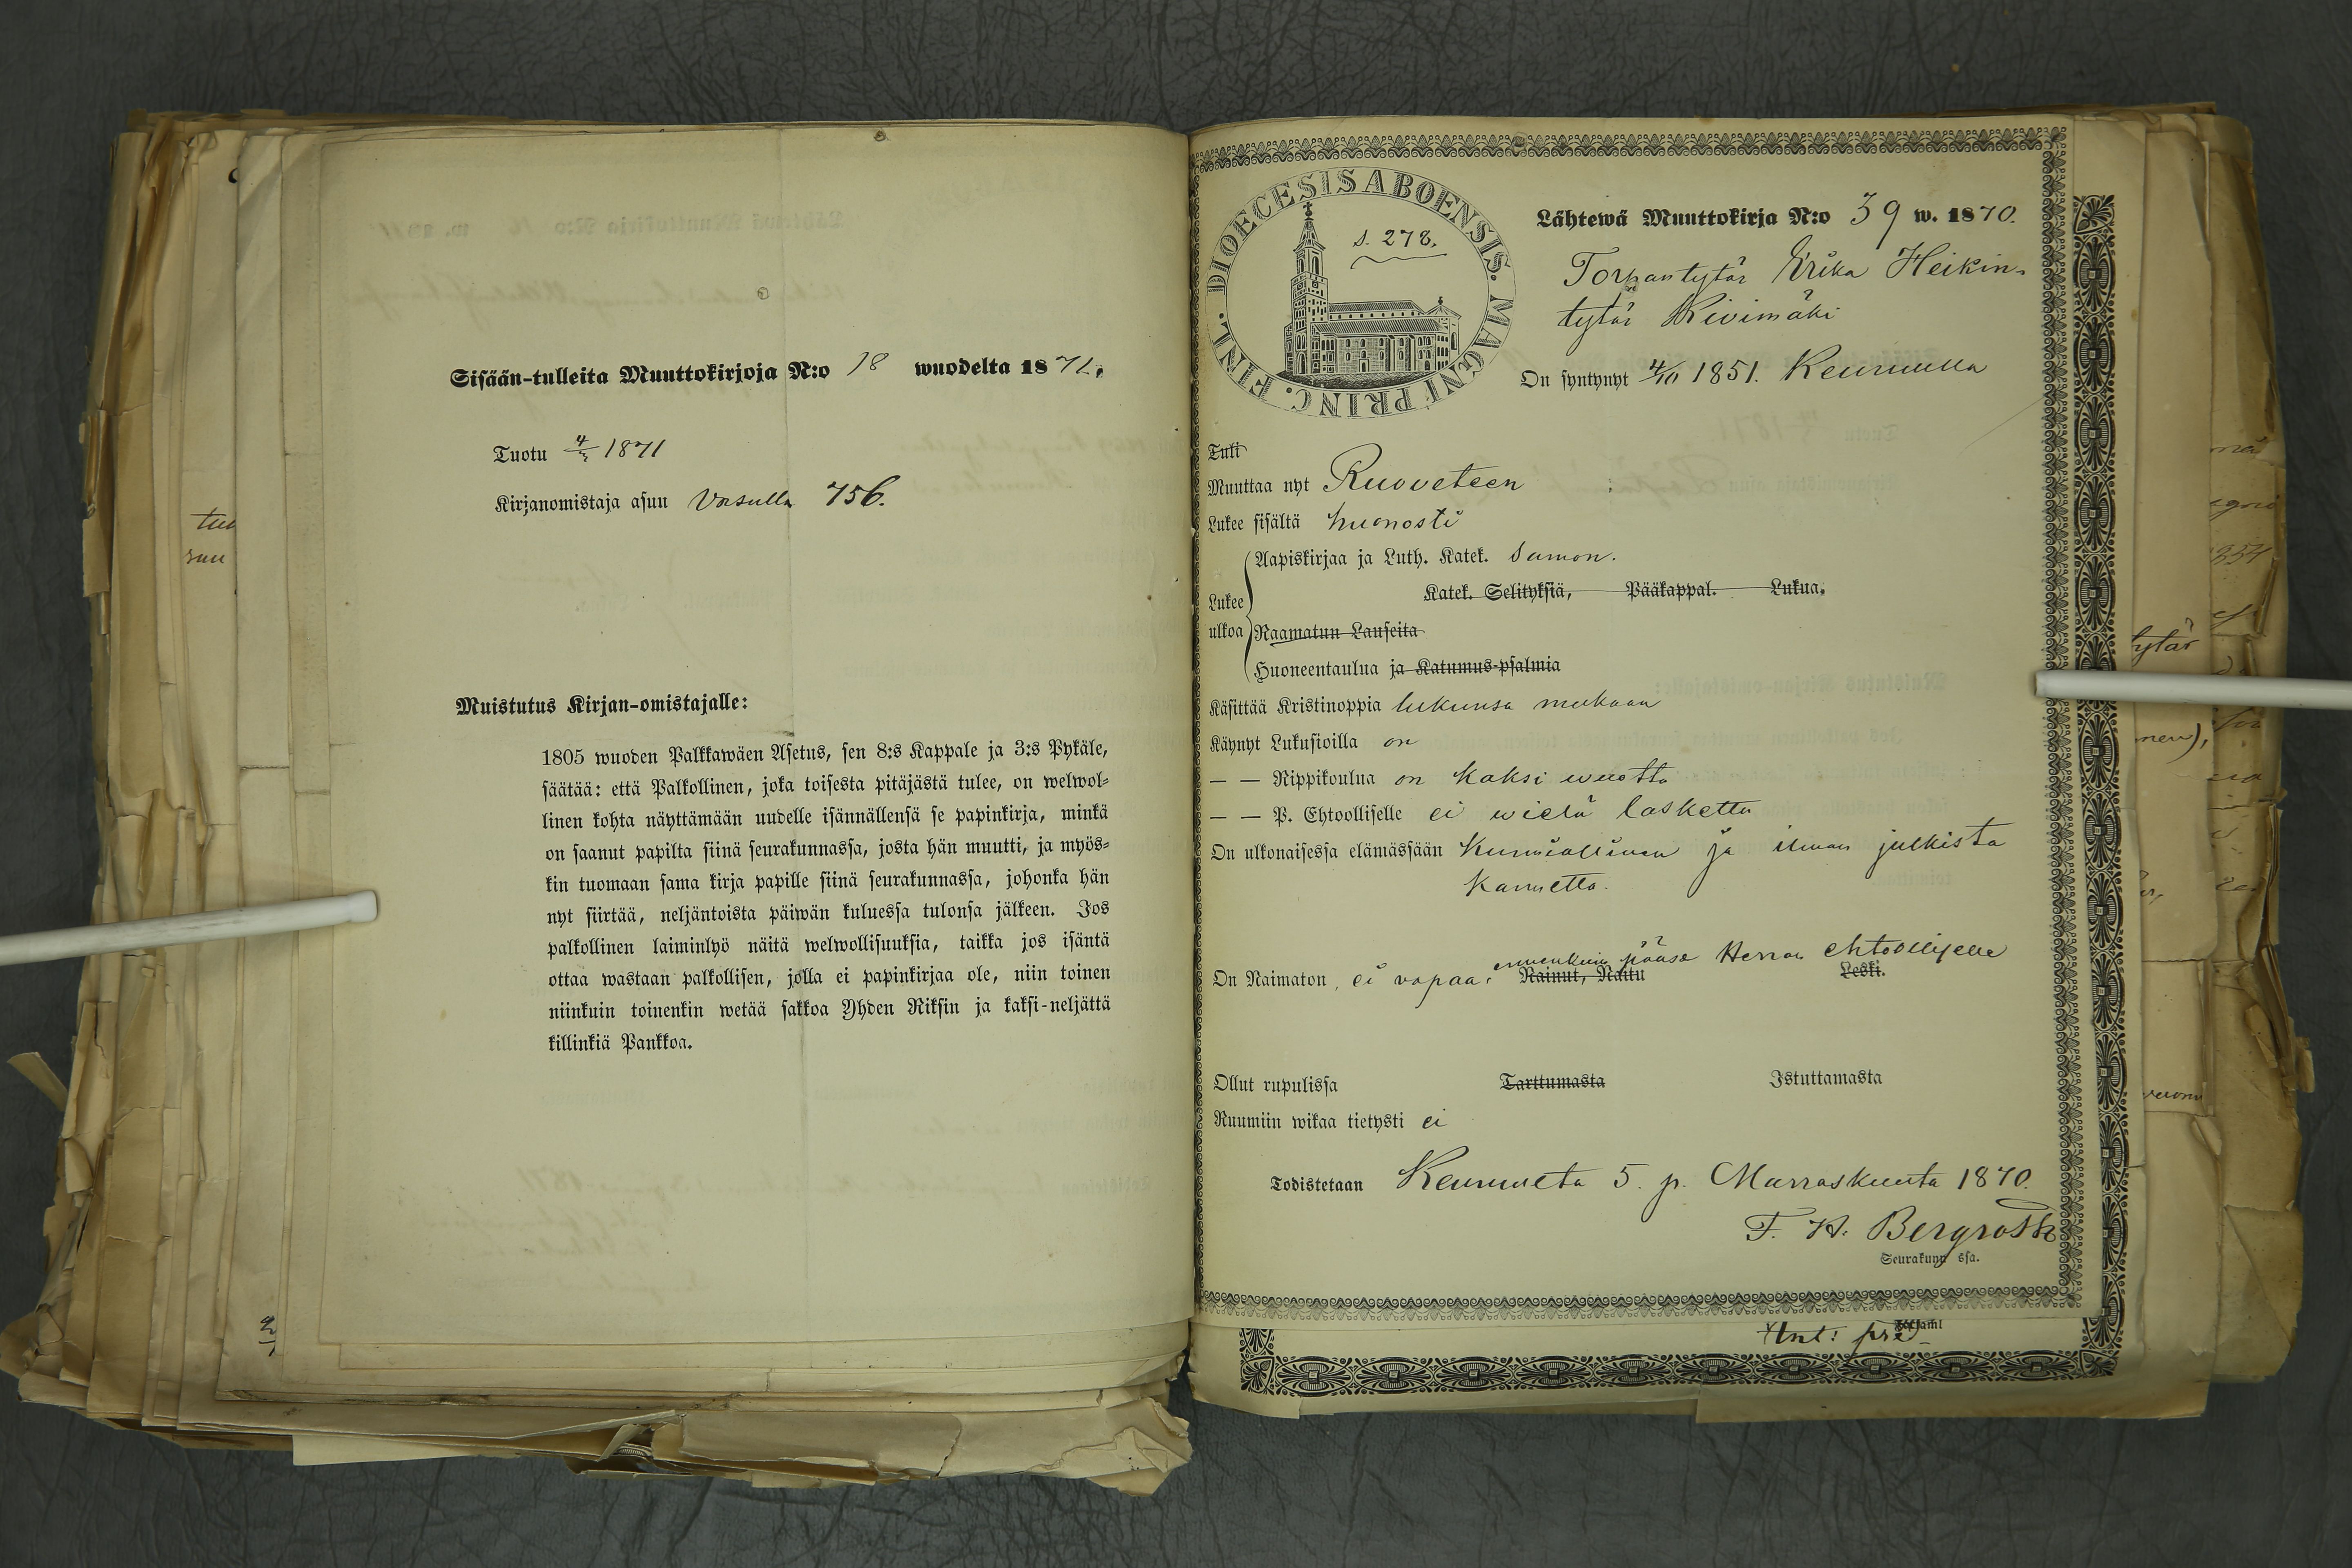 Sisään-tulleita Muuttokirjoja N:o 18 wuodelta 1871.
Tuotu 4/3 1871
Kirjanomistaja asuu Vasulla 756.
Muistutus Kirjan-omistajalle:
1805 wuoden Palkkawäen Asetus, sen 8:s Kappale ja 3:s Pykäle,
säätää: että Palkollinen, joka toisesta pitäjästä tulee, on welwol-
linen kohta näyttämään uudelle isännällensä se papinkirja, minkä
on saanut papilta siinä seurakunnassa, josta hän muutti, ja myös-
kin tuomaan sama kirja papille siinä seurakunnassa, johonka hän
nyt siirtää, neljäntoista päiwän kuluessa tulonsa jälkeen. Jos
palkollinen laiminlyö näitä welwollisuuksia, taikka jos isäntä
ottaa wastaan palkollisen, jolla ei papinkirjaa ole, niin toinen
niinkuin toinenkin wetää sakkoa Yhden Riksin ja kaksi-neljättä
killinkiä Pankkoa.
DIOECESIS ABOENSIS. MAGNI PRINC. FINL.
s. 278.
Lähtewä Muuttokirja N:o 39 w. 1870.
Torpantytär Erika Heikin-
tytär Kivimäki
On syntynyt 4/10 1851. Keuruulla
Tuli
Muuttaa nyt Ruoveteen
Lukee sisältä huonosti
Lukee ulkoa
Aapiskirjaa ja Luth. Katek. samon.
Katek. Selityksiä, Pääkappal. Lukua.
Raamatun Lauseita
Huoneentaulua ja Katumus-psalmia
Käsittää Kristinoppia lukunsa mukaan
Käynyt Lukusioilla on
— — Rippikoulua on kaksi wuotta
— — P. Ehtoolliselle ei wielä laskettu
On ulkonaisessa elämässään kunniallinen ja ilman julkista
kannetta.
On Naimaton, ei vapaa, ennenkuin pääse Herran ehtoolliselle
Nainut, Naitu Leski.
Ollut rupulissa Tarttumasta Istuttamasta
Ruumiin wikaa tietysti ei
Todistetaan Keuruulta 5. p. Marraskuuta 1870.
F. H. Bergroth
Seurakunn ssa.
tytär